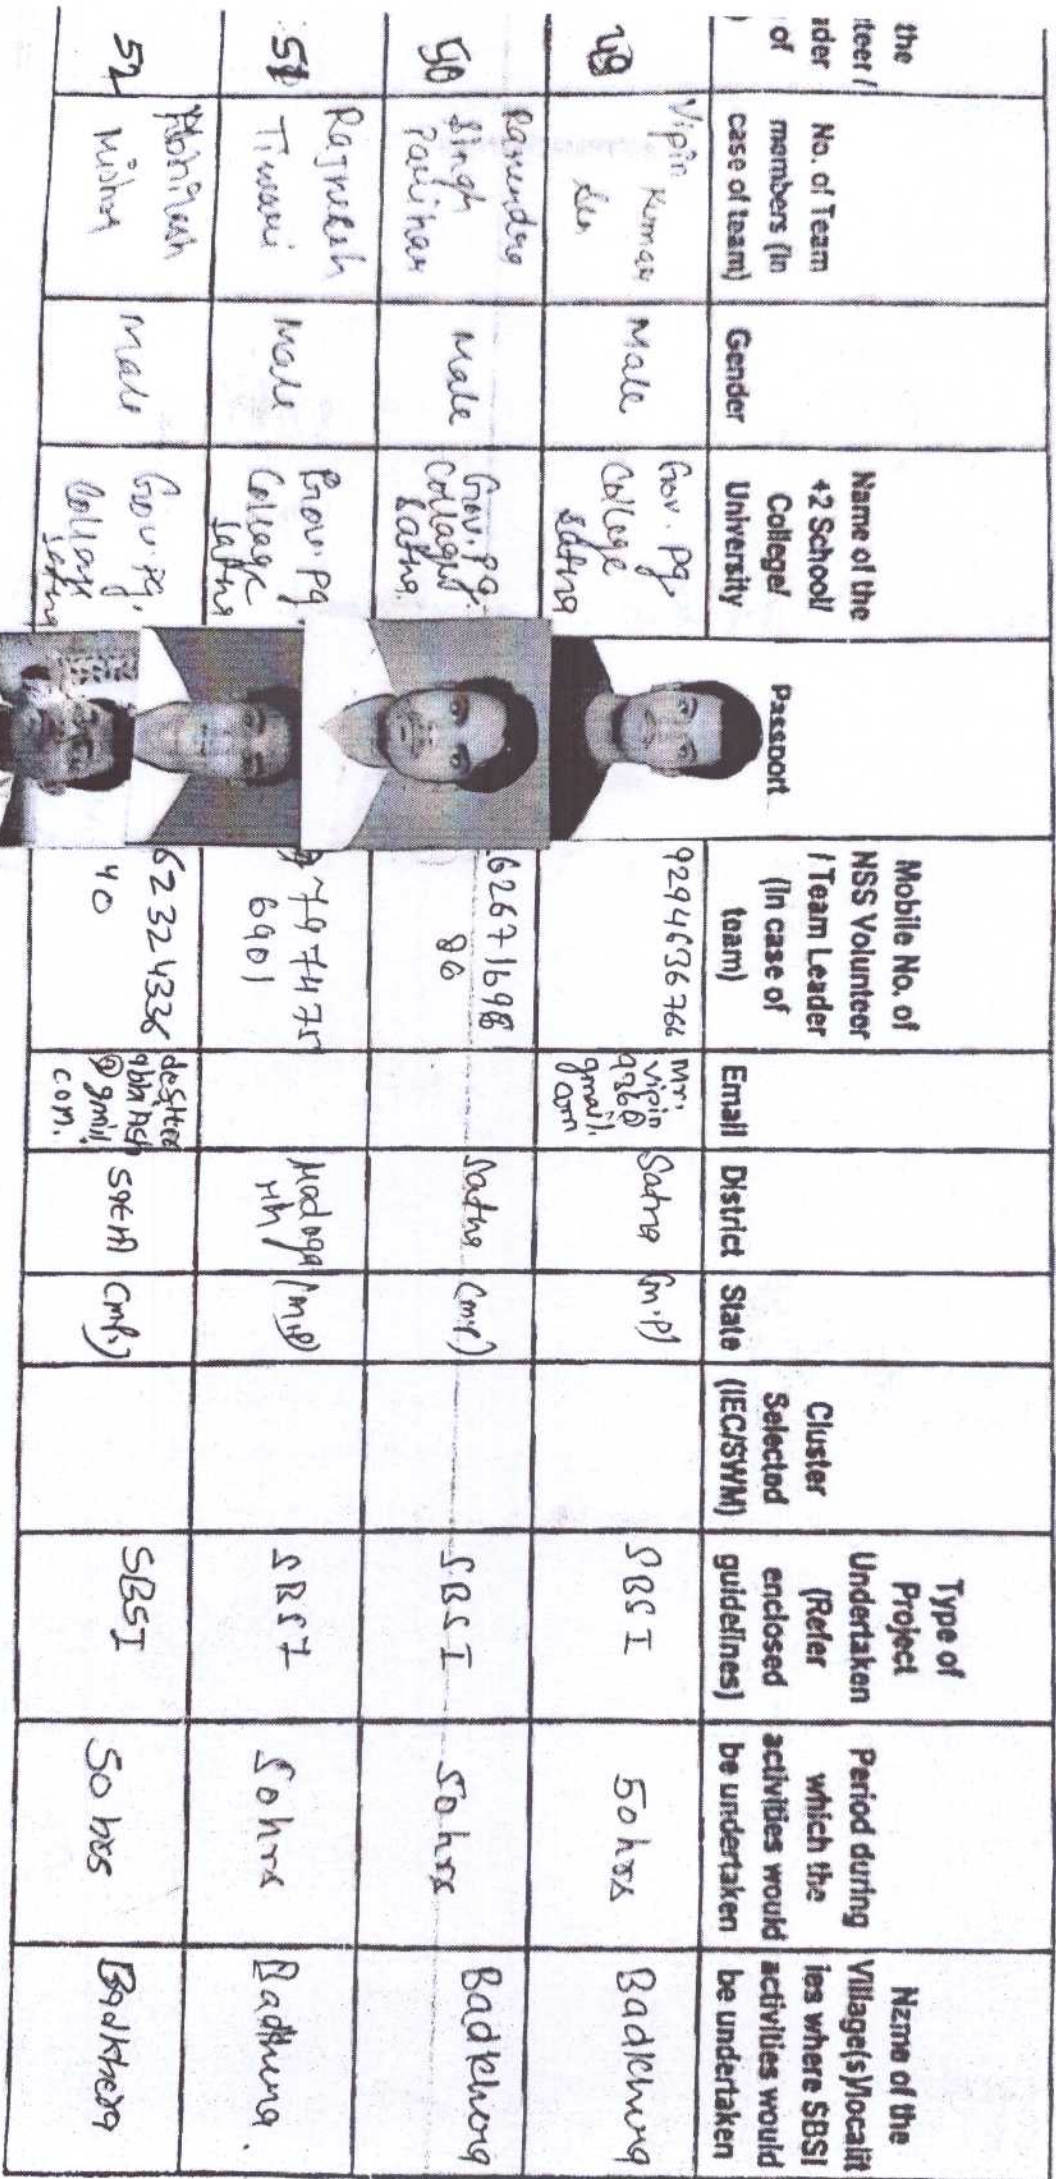 the
teer /
ader
of
)
No. of Team
members (In
case of team)
Gender
Name of the
+2 School/
College/
University
Passport
Mobile No. of
NSS Volunteer
/ Team Leader
(In case of
team)
Email
District
State
Cluster
Selected
(IEC/SWM)
Type of
Project
Undertaken
(Refer
enclosed
guidelines)
Period during
which the
activities would
be undertaken
Name of the
Village(s)/localit
ies where SBSI
activities would
be undertaken
49
Vipin Kumar
Sen
Male
Gov. Pg.
College
Satna
mr.
vipin
gmail.
com
Satna
(m.p)
SBSI
50 hrs
Badkhera
50
Singh
Parihar
Male
Gov. pg.
College
Satna
62671698
86
Satna
(m.p.)
SBSI
50 hrs
Badkhera
51
Rajneesh
Tiwari
Male
Gov. Pg
College
Satna
6901
(m.p)
SBSI
50 hrs
52
Abhinash
Mishra
Male
Gov. Pg.
College
Satna
62324336
40
@ gmil.
com.
(m.p.)
SBSI
50 hrs